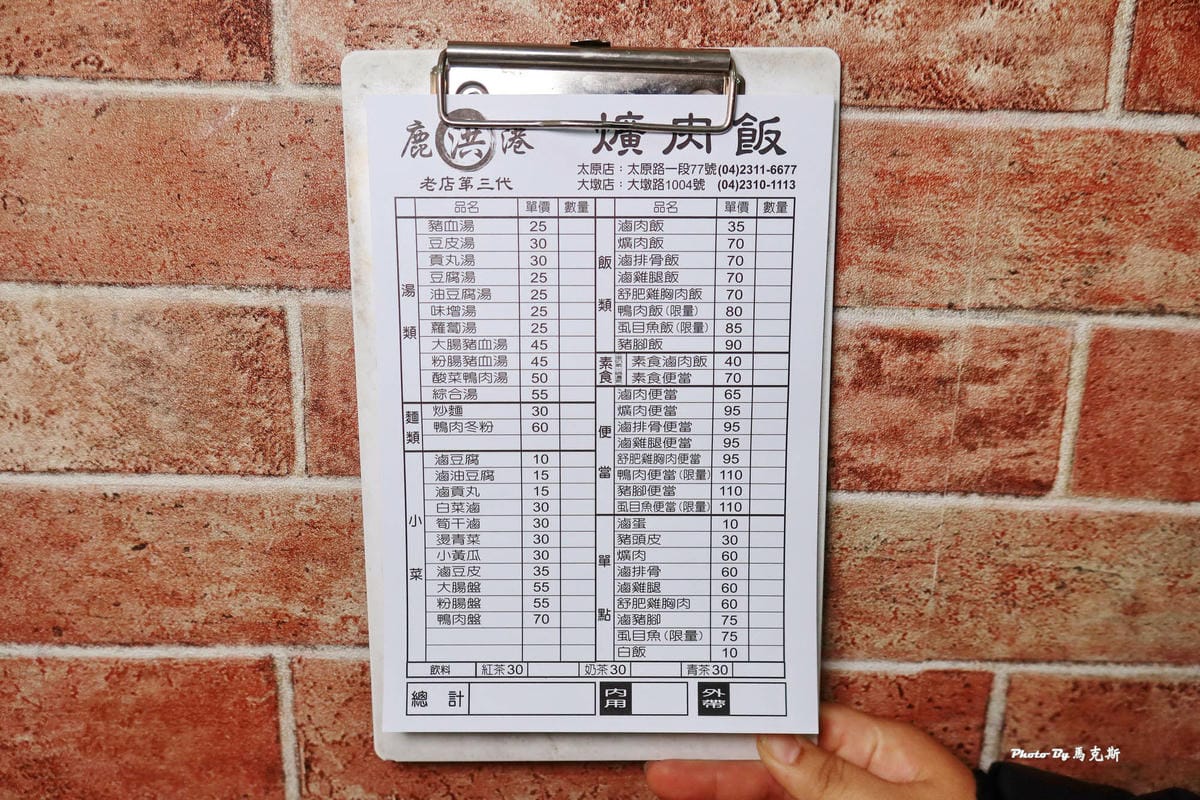 鹿洪港 爌肉飯
老店第三代
太原店：太原路一段77號(04)2311-6677
大墩店：大墩路1004號 (04)2310-1113
品名 單價 數量 品名 單價 數量
湯類
豬血湯 25
豆皮湯 30
貢丸湯 30
豆腐湯 25
油豆腐湯 25
味增湯 25
蘿蔔湯 25
大腸豬血湯 45
粉腸豬血湯 45
酸菜鴨肉湯 50
綜合湯 55
麵類
炒麵 30
鴨肉冬粉 60
小菜
滷豆腐 10
滷油豆腐 15
滷貢丸 15
白菜滷 30
筍干滷 30
燙青菜 30
小黃瓜 30
滷豆皮 35
大腸盤 55
粉腸盤 55
鴨肉盤 70
飯類
滷肉飯 35
爌肉飯 70
滷排骨飯 70
滷雞腿飯 70
舒肥雞胸肉飯 70
鴨肉飯(限量) 80
虱目魚飯(限量) 85
豬腳飯 90
素食
素食滷肉飯 40
素食便當 70
便當
滷肉便當 65
爌肉便當 95
滷排骨便當 95
滷雞腿便當 95
舒肥雞胸肉便當 95
鴨肉便當(限量) 110
豬腳便當 110
虱目魚便當(限量) 110
單點
滷蛋 10
豬頭皮 30
爌肉 60
滷排骨 60
滷雞腿 60
舒肥雞胸肉 60
滷豬腳 75
虱目魚(限量) 75
白飯 10
飲料 紅茶30 奶茶30 青茶30
總計 內用 外帶
Photo By 馬克斯